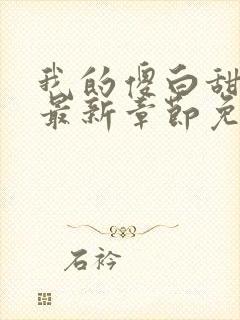 我的傻白甜
最新章节免
石衿